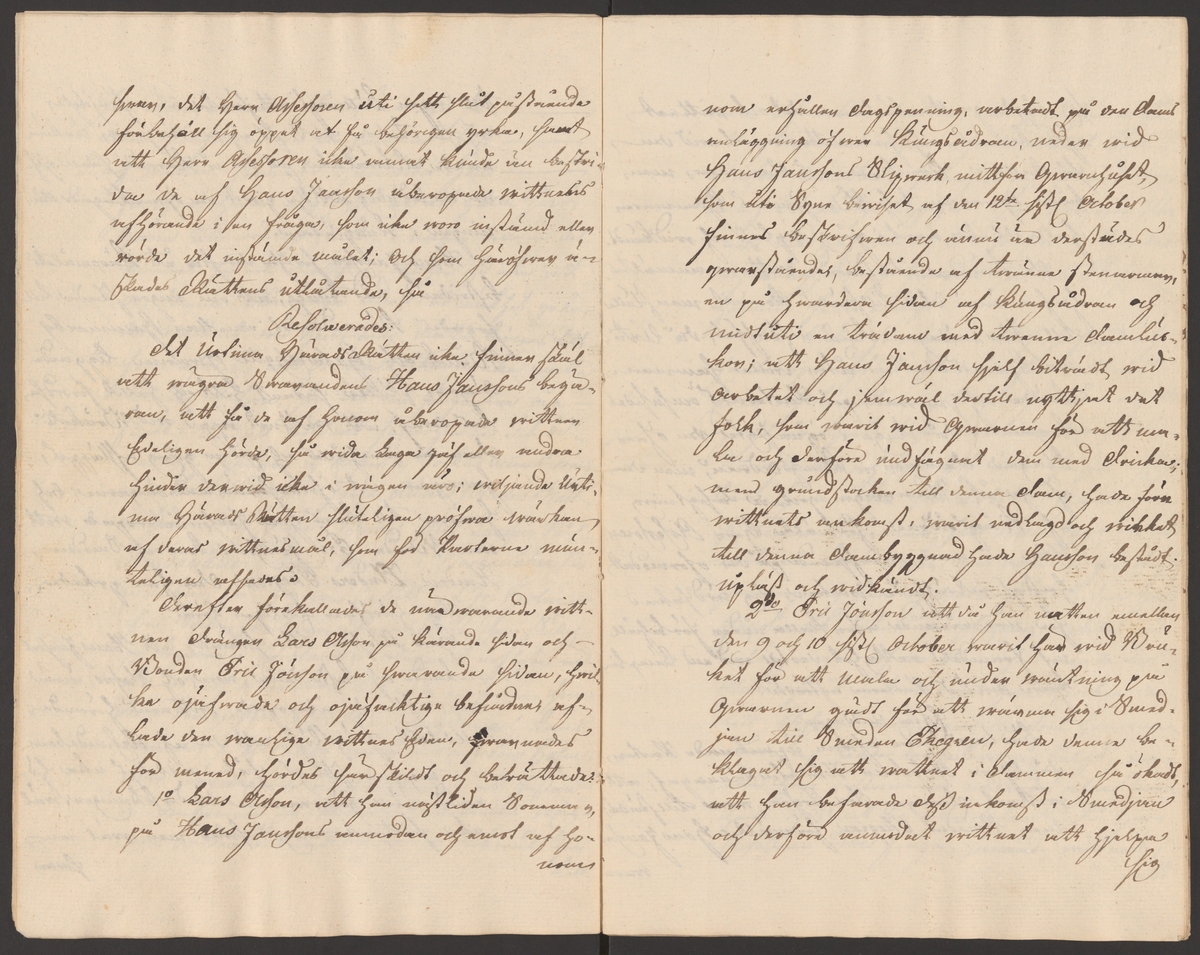 swar, det Herr Assessoren uti sitt slut påstående
förbehåll sig öppet at få behörigen yrka, samt
att Herr Assessoren icke annat kunde än bestri-
da de af Hans Jansson åberopade wittnens
afhörande i en fråga, som icke woro instämd eller
rörde det instämde målet; och som häröfwer ä-
skades Rättens utlåtande, så
Resolverades:
Det Urtima HäradsRätten icke finner skäl
att wägra Swarandens Hans Janssons begä-
ran, att få de af honom åberopade wittnen
Edeligen hörde, så wida laga jäf eller andra
hinder derwid icke i wägen äro; wiljande Urti-
ma Härads Rätten sluteligen pröfwa wärkan
af deras wittnesmål, som för Parterne mun-
teligen afsades.
Derefter förekallades de närwarande witt-
nen Drängen Lars Olsson på kärande sidan och
Bonden Eric Jönsson på swarande sidan, hwil-
ka ojäfwade och ojäfacktige befundne af-
lade den wanlige wittnes Eden, warnades
för mened, hördes särskildt och berättade:
1o Lars Olsson, att han nästliden Sommar,
på Hans Janssons anmodan och emot af ho-
nom
nom erhållen dagspenning, arbetadt på den Dams
anläggning öfwer Kungsådran, neder wid
Hans Janssons Slipwerk mittför Qwarnhuset,
som uti Syne beviset af den 12te sistl October
finnes beskrifwen och ännu är derstädes
qwarstående, bestående af twänne stenarmar,
en på hwardera sidan af Kungsådran och
midtuti en trädam med twenne Damlus-
kor; att Hans Jansson sjelf biträdt wid
arbetet och jemwäl dertill nyttjat det
folk, som warit wid Qwarnen för att ma-
la och derföre undfägnat dem med Dricka;
men grundstocken till denna Dam, hade före
wittnets ankomst, warit nedlagd och wirket
till denna Dambyggnad hade Hansson bestådt.
upläst och widkändt.
2do Eric Jönsson att då han natten emellan
den 9 och 10 sistl October warit här wid Bru-
ket för att mala och under wäntning på
Qwarnen gådt för att wärma sig i Smed-
jan till Smeden Ekegren, hade denne be-
klagat sig att wattnet i Dammen så ökadt,
att han befarade dess inkomst i Smedjan
och derföre anmodat wittnet att hjelpa
sig